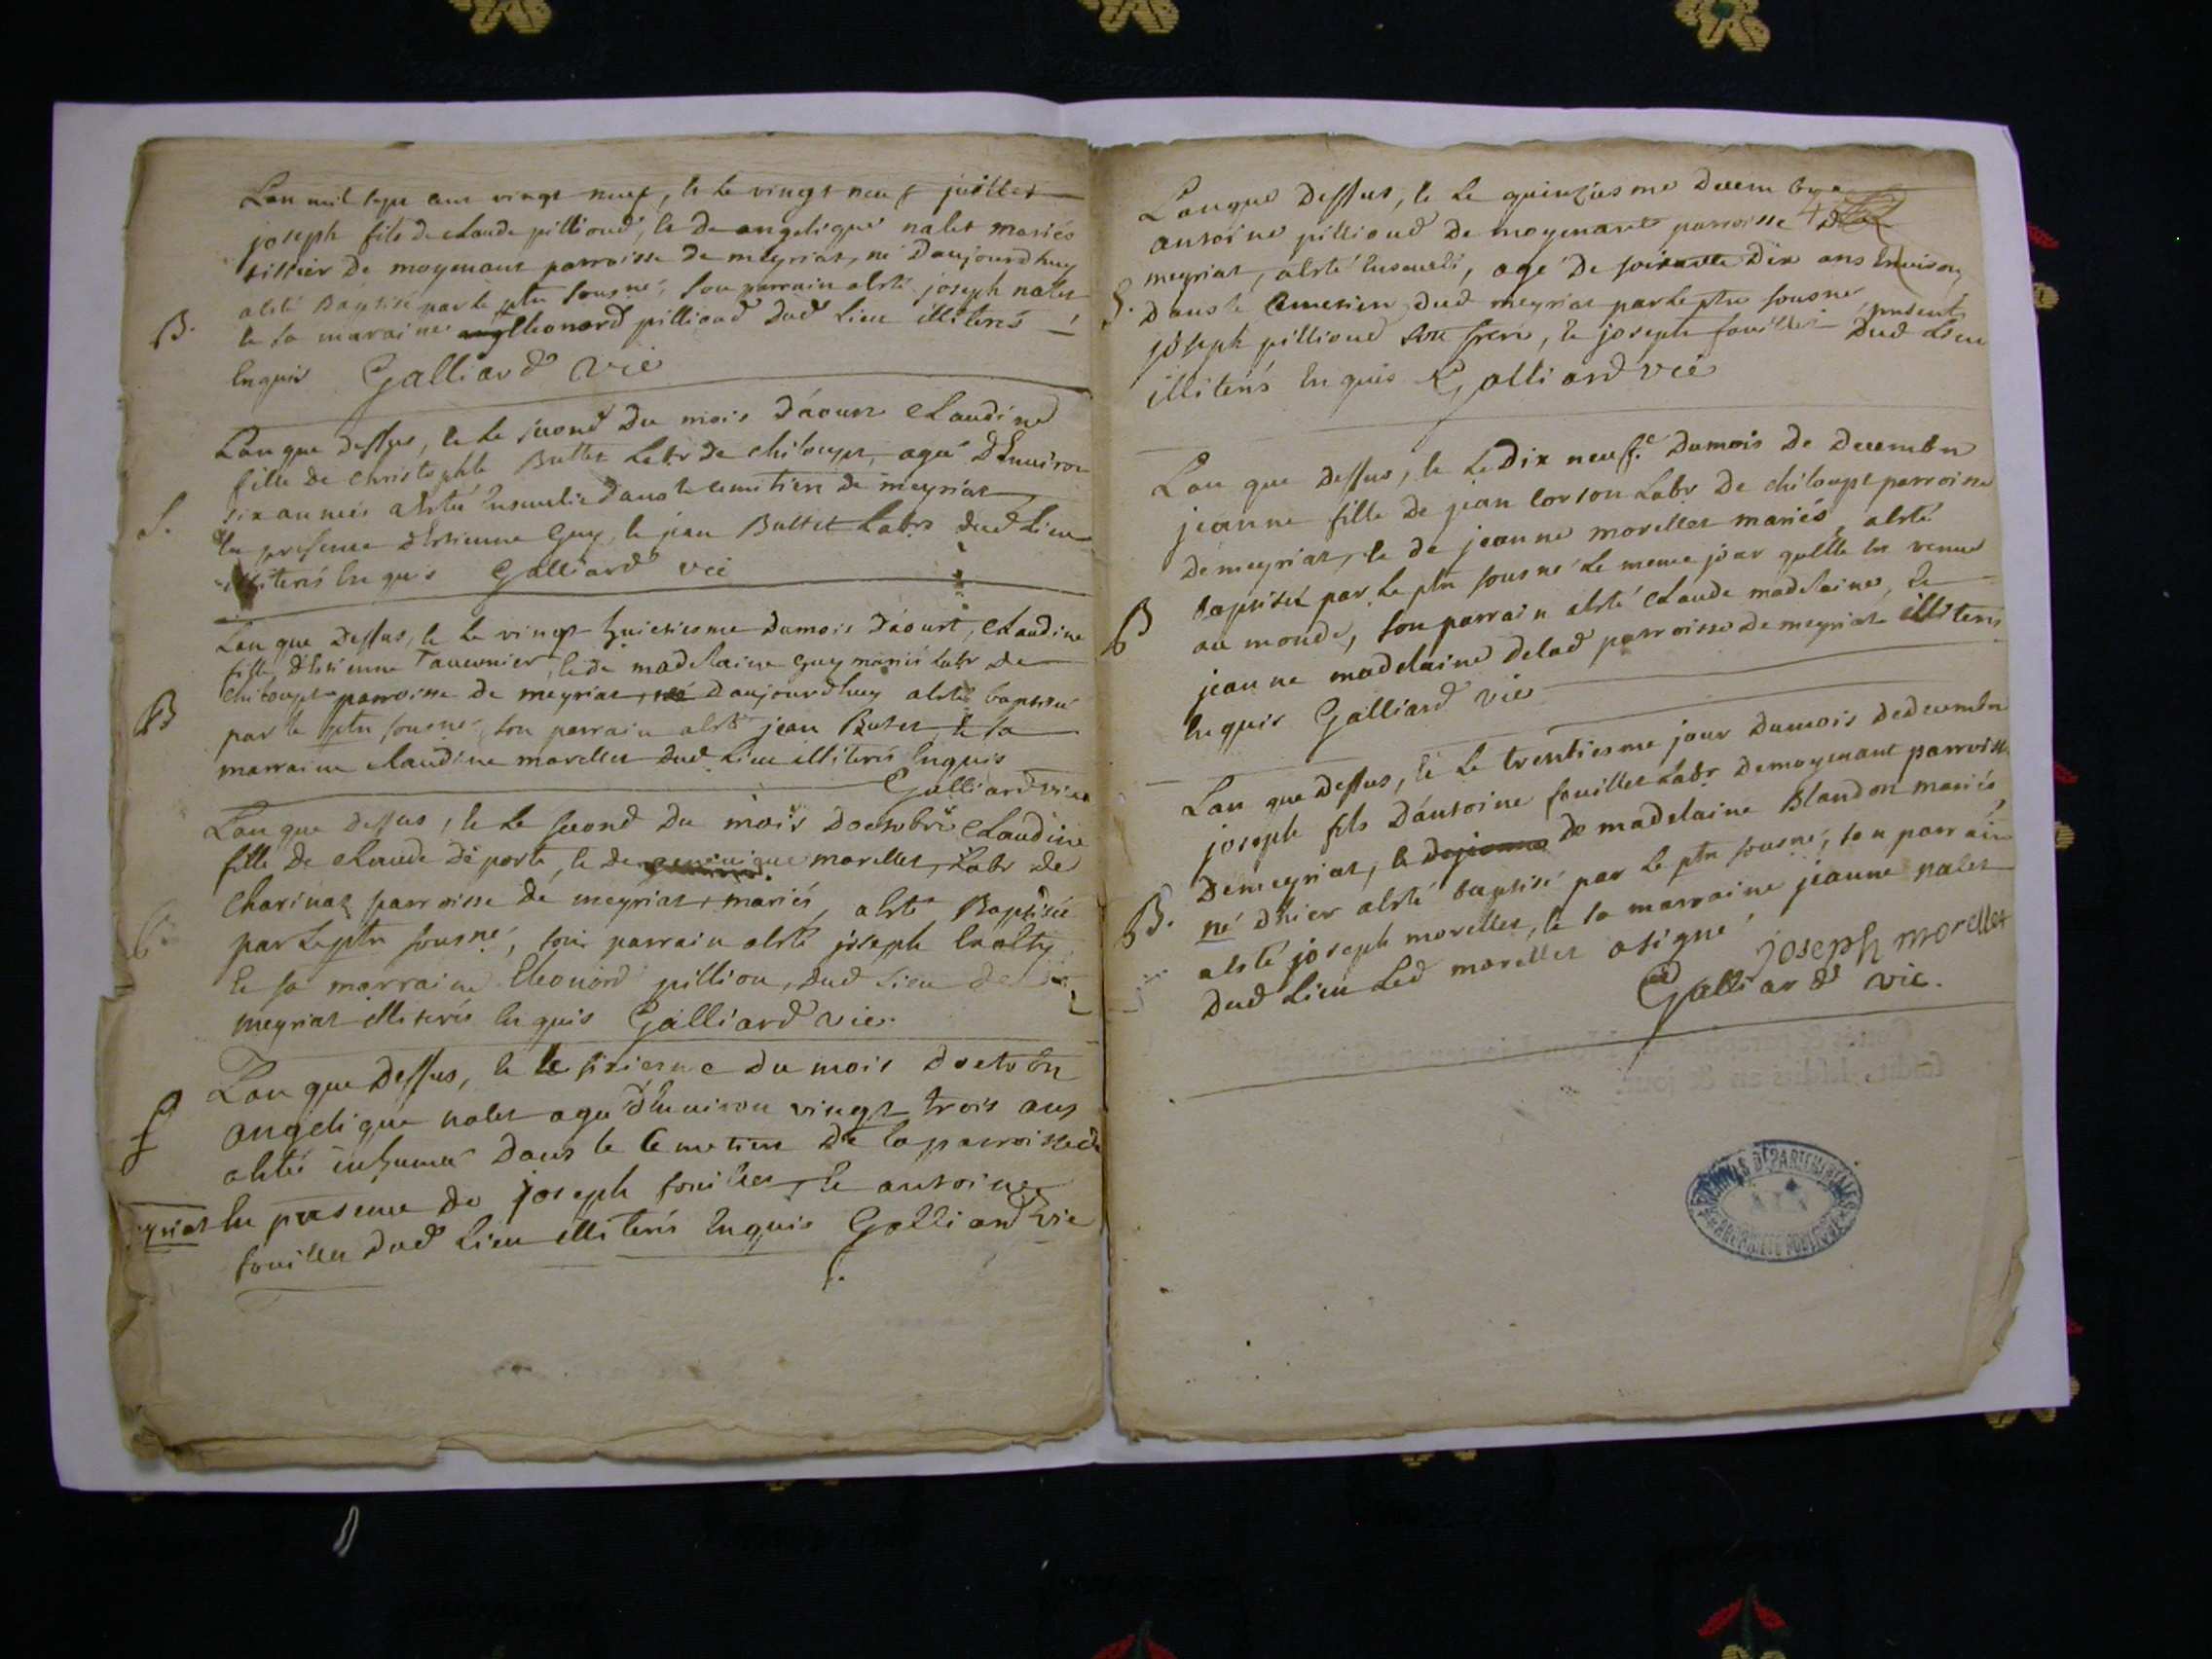 Lan mil sept cens vingt neuf, & le vingt neuf juillet
joseph fils de claude pillioud, & de angelique nalet mariés
tissier de moynant parroisse de meyriat, né daujourdhuy
B. a esté Baptisé par le ptre sousné, son parrain a esté joseph nalet
& sa maraine leonard pillioud dud lieu illiterés
Enquis Galliard vic
Lan que dessus, & le second du mois d'aoust claudine
fille de christophle Buttet labr de chiloupt, agé d'Environ
S. six années a estée Ensevelie dans le cemetiere de meyriat
En presence d'Estienne Guy, & jean Buttet labrs dud lieu
illiterés Enquis Galliard vic
Lan que dessus, & le vingt huictiesme du mois d'aoust, claudine
fille d'Estienne Tavernier, & de madelaine Guy mariés labr de
B chiloupt parroisse de meyriat, née daujourdhuy a esté baptisé
par le ptre sousné, son parrain a esté jean Butet, & sa
marraine claudine morellet dud lieu illiterés Enquis
Galliard vic
Lan que dessus, & le second du mois d'octobre claudine
fille de claude de porte, & de morellet, labr de
charinaz parroisse de meyriat, mariés, a esté Baptisée
par le ptre sousné, son parrain a esté joseph
& sa marraine leonard pilliou, dud lieu de
meyriat illiterés Enquis Galliard vic.
Lan que dessus, & le siziesme du mois d'octobre
S angelique nalet agée d'Environ vingt trois ans
a estée inhumée dans le cemetiere de la parroisse de
meyriat En presence de joseph fouillet, & antoine
fouillet dud lieu illiterés Enquis Galliard vic
Lan que dessus, & le quinziesme decembre
antoine pillioud de moynant parroisse de
meyriat, a esté Enseveli, agé de soixante dix ans Environ
S. dans le cemetiere dud meyriat par le ptre sousné presents
joseph pillioud son frere, & joseph fouillet dud lieu
illiterés Enquis Galliard vic
Lan que dessus, & le dix neufe du mois de decembre
jeanne fille de jean corson labr de chiloupt parroisse
de meyriat, & de jeanne morellet mariés, a esté
B baptisée par le ptre sousné le meme jour quelle En venue
au monde, son parrain a esté claude madelaine, &
jeanne madelaine de lad parroisse de meyriat illiterés
Enquis Galliard vic
Lan que dessus, & le trentiesme jour du mois de decembre
joseph fils d'antoine fouillet labr de moynant parroisse
de meyriat, & de jeanne de madelaine Blandon mariés,
B. né d'hier a esté baptisé par le ptre sousné, son parrain
a esté joseph morellet, & sa marraine jeanne nalet
dud lieu led morellet a signé joseph morellet
Galliard vic.
ARCHIVES DÉPARTEMENTALES
AIN
PROPRIÉTÉ PUBLIQUE